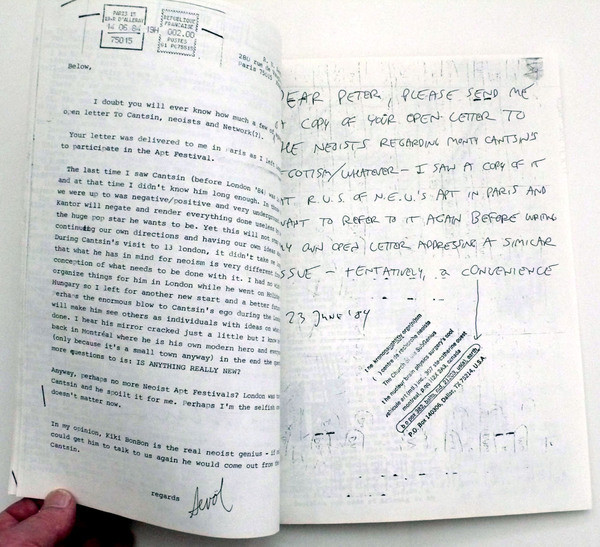 PARIS 117
14 06 84 19H
75015
REPUBLIQUE
FRANCAISE
002.00
POSTES
280 rue de
Paris 75015
Below,
I doubt you will ever know how much a few of
open letter To Cantsin, neoists and Network(?).
Your letter was delivered to me in Paris as I left
to participate in the Apt Festival.
The last time I saw Cantsin (before London '84) was
and at that time I didn't know him long enough. In
we were up to was negative/positive and very undergroun
Kantor will negate and render everything done useless
the huge pop star he wants to be. Yet this will not
continuing our own directions and having our own ideas
During Cantsin's visit to 13 london, it didn't take
that what he has in mind for neoism is very different
conception of what needs to be done with it. I had no
organize things for him in London while he went on
Hungary so I left for another new start and a better
Perhaps the enormous blow to Cantsin's ego during the
will make him see others as individuals with ideas on
done. I hear his mirror cracked just a little but I know
back in Montréal where he is his own modern hero and
(only because it's a small town anyway) in the end the
more questions to is: IS ANYTHING REALLY NEW?
Anyway, perhaps no more Neoist Apt Festivals? London was
Cantsin and he spoilt it for me. Perhaps I'm the selfish
doesn't matter now.
In my opinion, Kiki Bonbon is the real neoist genius -
could get him to talk to us again he would come out from
Cantsin.
regards
DEAR PETER, PLEASE SEND ME
A COPY OF YOUR OPEN LETTER TO
THE NEOISTS REGARDING MONTI CANTSIN'S
EGOTISM/WHATEVER - I SAW A COPY OF IT
AT R.U.S. OF N.E.U.'S APT IN PARIS AND
WANT TO REFER TO IT AGAIN BEFORE WRITING
MY OWN OPEN LETTER ADDRESSING A SIMILAR
ISSUE - TENTATIVELY, a CONVENIENCE
23 JUNE '84
centre de recherche neoiste
The Church of the SubGenius
the nuclear brain physics surgery's cool
P.O. Box 140306, Dallas, TX 75214, U.S.A.